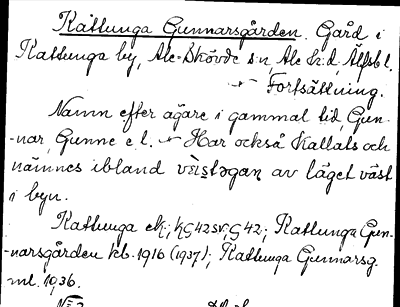 Kattunga Gunnarsgården. Gård i
Kattunga by, Ale-Skövde s:n, Ale h:d, Älfsb l.
Fortsättning.
Namn efter ägare i gammal tid, Gun-
-nar, Gunne e. l. Har också kallats och
nämnes ibland av läget väst
i byn.
Kattunga ek; hG42sv; G 42; Kattunga Gun-
-narsgården kb. 1916 (1937); Kattunga Gunnarsg.
ml. 1936.